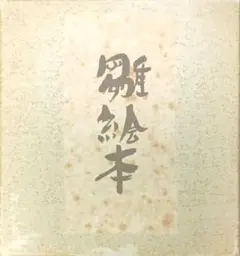 雛絵本